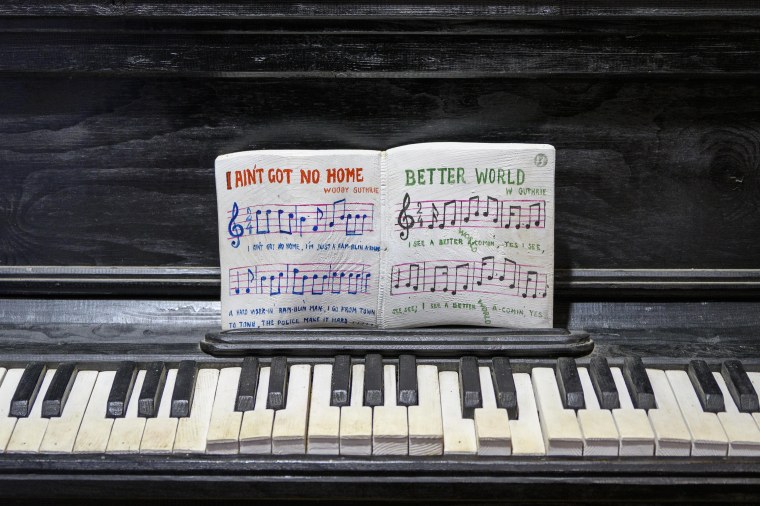 I AIN'T GOT NO HOME
WOODY GUTHRIE
2
4
I AIN'T GOT NO HOME, I'M JUST A RAM-BLIN A-ROUND
A HARD WORK-IN' RAM-BLIN' MAN, I GO FROM TOWN
TO TOWN, THE POLICE MAKE IT HARD
BETTER WORLD
W GUTHRIE
2
4
I SEE A BETTER WORLD A-COMIN', YES I SEE,
SEE, SEE, I SEE A BETTER WORLD A-COMIN, YES